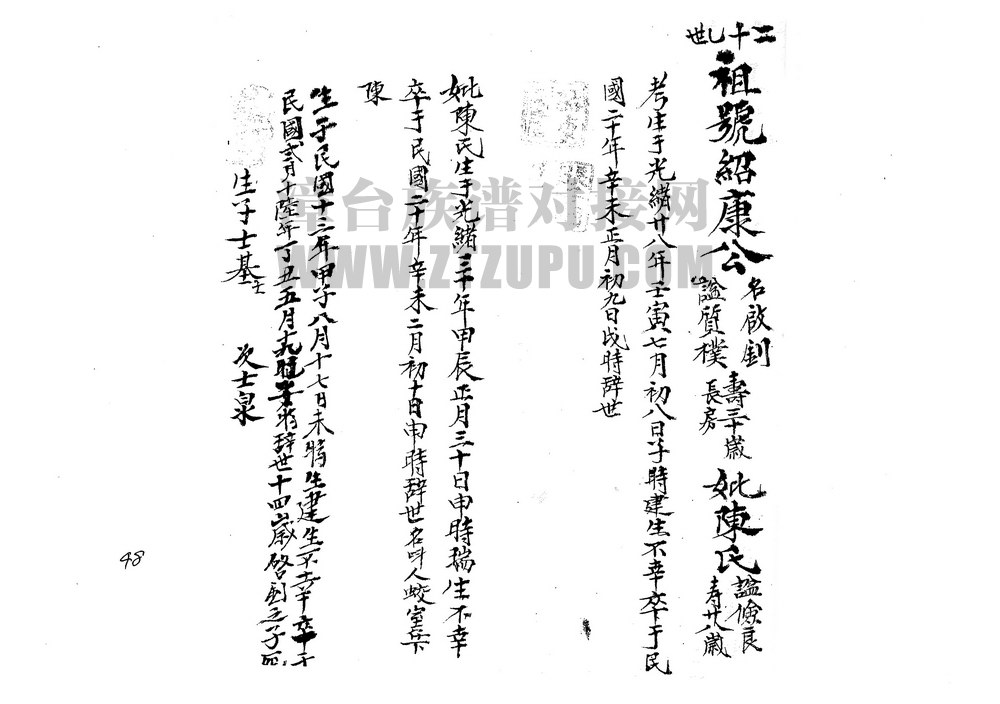 二十七世
祖號紹康公 名啟釗 諡質樸 壽三十歲 長房 妣陳氏 諡儉良 寿廿八歲
考生于光緒廿八年壬寅七月初八日子時建生不幸卒于民
國二十年辛未正月初九日戌時辞世
妣陳氏生于光緒三十年甲辰正月三十日申時瑞生不幸
卒于民國二十年辛未二月初十日申時辞世名叫人
陳
生子民國十三年甲子八月十七日未時生建生不幸卒于
民國貳十陸年丁丑五月 辞世十四歲啓釗之子
生子士基 次士泉
48
譜台族谱对接网
WWW.ZTZUPU.COM